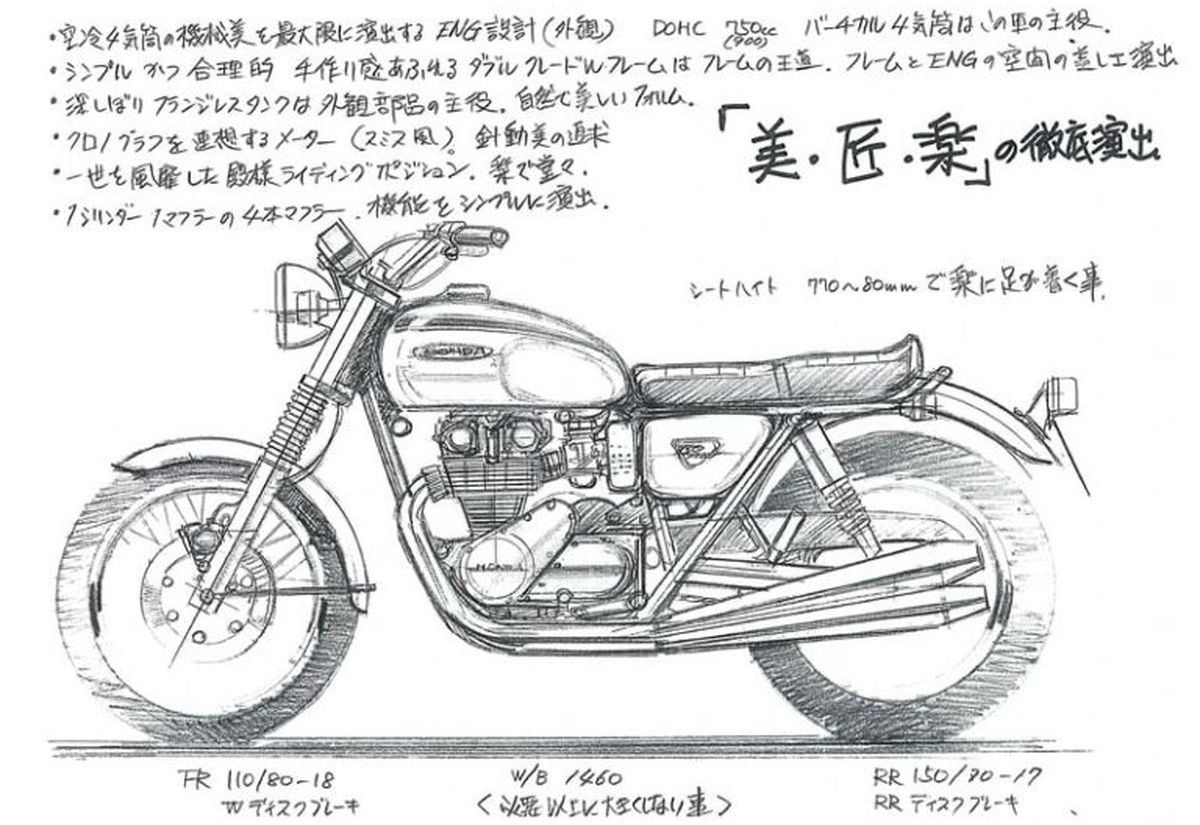 ・空冷4気筒の機械美を最大限に演出する ENG設計(外観) DOHC 750cc バーチカル4気筒はこの車の主役.
(900)
・シンプルかつ合理的 手作り感あふれるダブルクレードルフレームはフレームの王道. フレームとENGの空間の差し工演出
・深しぼりフランジレスタンクは外観部品の主役. 自然で美しいフォルム.
・クロノグラフを連想するメーター(スミス風)。針動美の追求
・一世を風靡した殿様ライディングポジション. 楽で堂々.
・1シリンダー1マフラーの4本マフラー. 機能をシンプルに演出.
「美・匠・楽」の徹底演出
シートハイト 770〜80mmで楽に足が着く事.
HONDA
HONDA
FR 110/80-18
Wディスクブレーキ
W/B 1460
〈必要以上に大きくしない事〉
RR 150/70-17
RR ディスクブレーキ